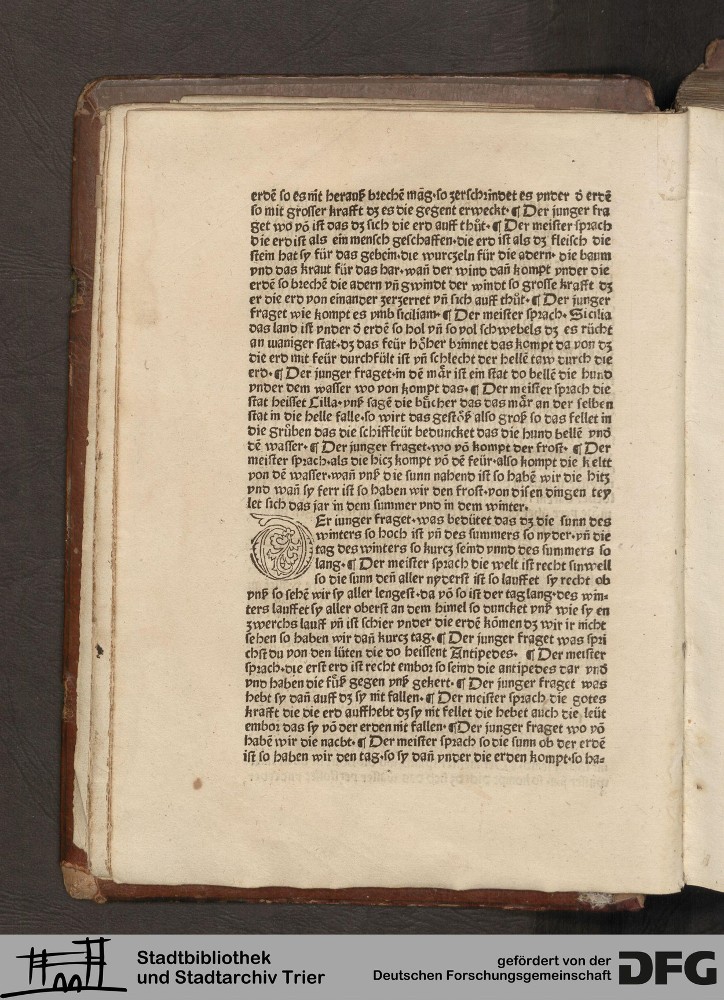 erdē so es nit herauß brechē mag·so zerschrindet es vnder d̄ erdē
so mit grosser krafft dz es die gegent erweckt·¶ Der junger fra
get wo vō ist das dz sich die erd auff thůt·¶ Der meister sprach
die erd ist als ein mensch geschaffen·die erd ist als dz fleisch die
stein hat sy für das gebein·die wurczeln für die adern· die baum
vnd das kraut für das har·wañ der wind dañ kompt vnder die
erdē so brechē die adern vñ gwindt der windt so grosse krafft dz
er die erd von einander zerzerret vñ sich auff thůt·¶ Der junger
fraget wie kompt es vmb siciliam·¶ Der meister sprach· Sicilia
das land ist vnder d̄ erdē so hol vñ so vol schwebels dz es rücht
an waniger stat·dz das feür höher brinnet das kompt da von dz
die erd mit feür durchfült ist vñ schlecht der hellē taw durch die
erd·¶ Der junger fraget·in dē mår ist ein stat do bellē die hund
vnder dem wasser wo von kompt das·¶ Der meister sprach die
stat heisset Cilla·vnß sagē die bücher das das mår an der selben
stat in die helle falle·so wirt das gestöß also groß so das fellet in
die grůben das die schiffleüt beduncket das die hund bellē vnd
dē wasser·¶ Der junger fraget·wo vō kompt der frost· ¶ Der
meister sprach·als die hicz kompt vō dē feür·also kompt die keltt
von dē wasser·wañ vnß die sunn nahend ist so habē wir die hitz
vnd wañ sy ferr ist so haben wir den frost·von disen dingen tey
let sich das jar in dem summer vnd in dem winter·
Er iunger fraget·was bedütet das dz die sunn des
winters so hoch ist vñ des summers so nyder·vñ die
tag des winters so kurcz seind vnnd des summers so
lang·¶ Der meister sprach die welt ist recht sinwell
so die sunn den̄ aller nyderst ist so lauffet sy recht ob
vnß so sehē wir sy aller lengest·da vō so ist der tag lang·des win⸗
ters lauffet sy aller oberst an dem himel so duncket vnß wie sy en
zwerchs lauff vñ ist schier vnder die erdē kōmen dz wir ir nicht
sehen so haben wir dañ kurcz tag·¶ Der junger fraget was spri
chst du von den lüten die do heissent Antipedes· ¶ Der meister
sprach·die erst erd ist recht embor so seind die antipedes dar vnd
vnd haben die füß gegen vnß gekert·¶ Der junger fraget was
hebt sy dañ auff dz sy nit fallen·¶ Der meister sprach die gotes
krafft die die erd auffhebt dz sy nit fellet die hebet auch die leüt
embor das sy vō der erden nit fallen·¶Der junger fraget wo vō
habē wir die nacht·¶ Der meister sprach so die sunn ob der erdē
ist so haben wir den tag·so sy dañ vnder die erden kompt·so ha⸗
Stadtbibliothek
und Stadtarchiv Trier
gefördert von der
Deutschen Forschungsgemeinschaft
DFG